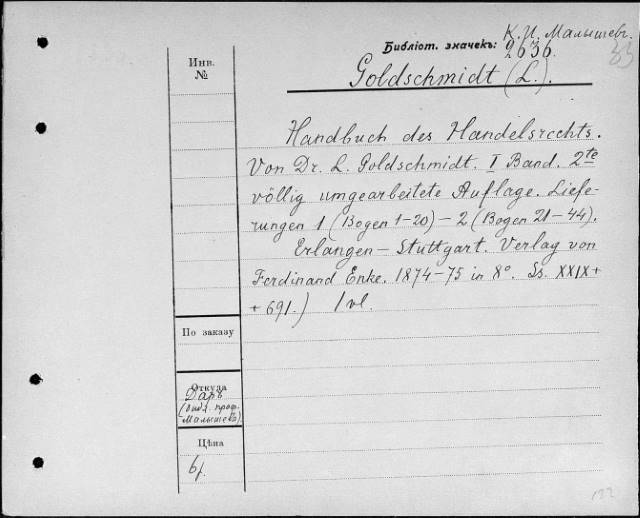 К. И. Малышев.
Библіот. значекъ: 2636.
33
Goldschmidt (L.).
Инв.
№
Handbuch des Handelsrechts.
Von Dr. L. Goldschmidt. I Band. 2te
völlig umgearbeitete Auflage. Liefe-
rungen 1 (Bogen 1-20) - 2 (Bogen 21-44).
Erlangen - Stuttgart. Verlag von
Ferdinand Enke. 1874-75 in 8°. Ss. XXIX+
+ 691.) 1 vl.
По заказу
Откуда
Даръ
проф.
Малышевъ)
Цѣна